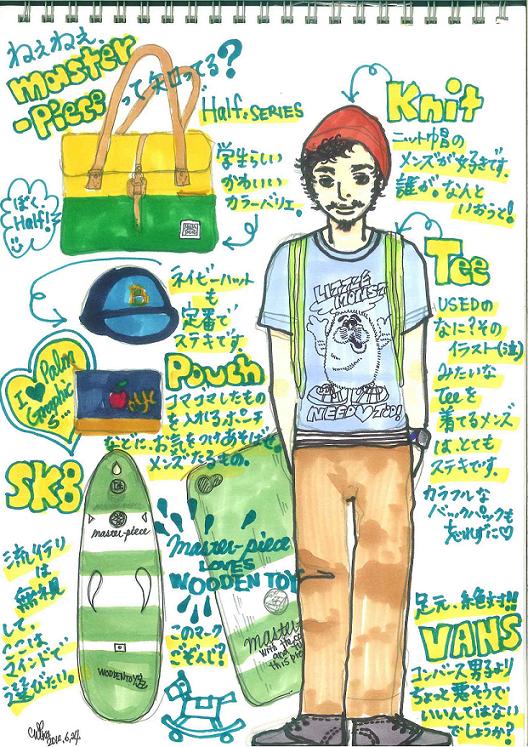 ねぇねぇ、
master
-piece
って知ってる?
Half: SERIES
学生らしい
かわいい
カラーバリエ。
ぼく、
Half!
Knit
ニット帽の
メンズが好きです。
誰が、なんと
いおうと!
ネイビーハット
も
定番で
ステキです。
Tee
USEDの
なに?その
イラスト(泣)
みたいな
Teeを
着てるメンズ
は、とても
ステキです。
カラフルな
バックパックも
忘れずに♡
LITTLE
MONST
NEED YOO!
I ♥ Palm
Graphic
S...
Pouch
コマゴマしたもの
を入れるポーチ
などに、お気をつけあそばせ。
メンズたるもの。
SK8
流行り
は
無視
して、
ここは
マインドで
選びたい。
master-piece
WOODENTOY
master-piece
LOVES
WOODEN TOY
このマーク
ごぞんじ?
Master-
this pie
足元、絶対!!
VANS
コンバース男子より
ちょっと悪そうで
いいんではない
でしょうか?
2010.6.24.